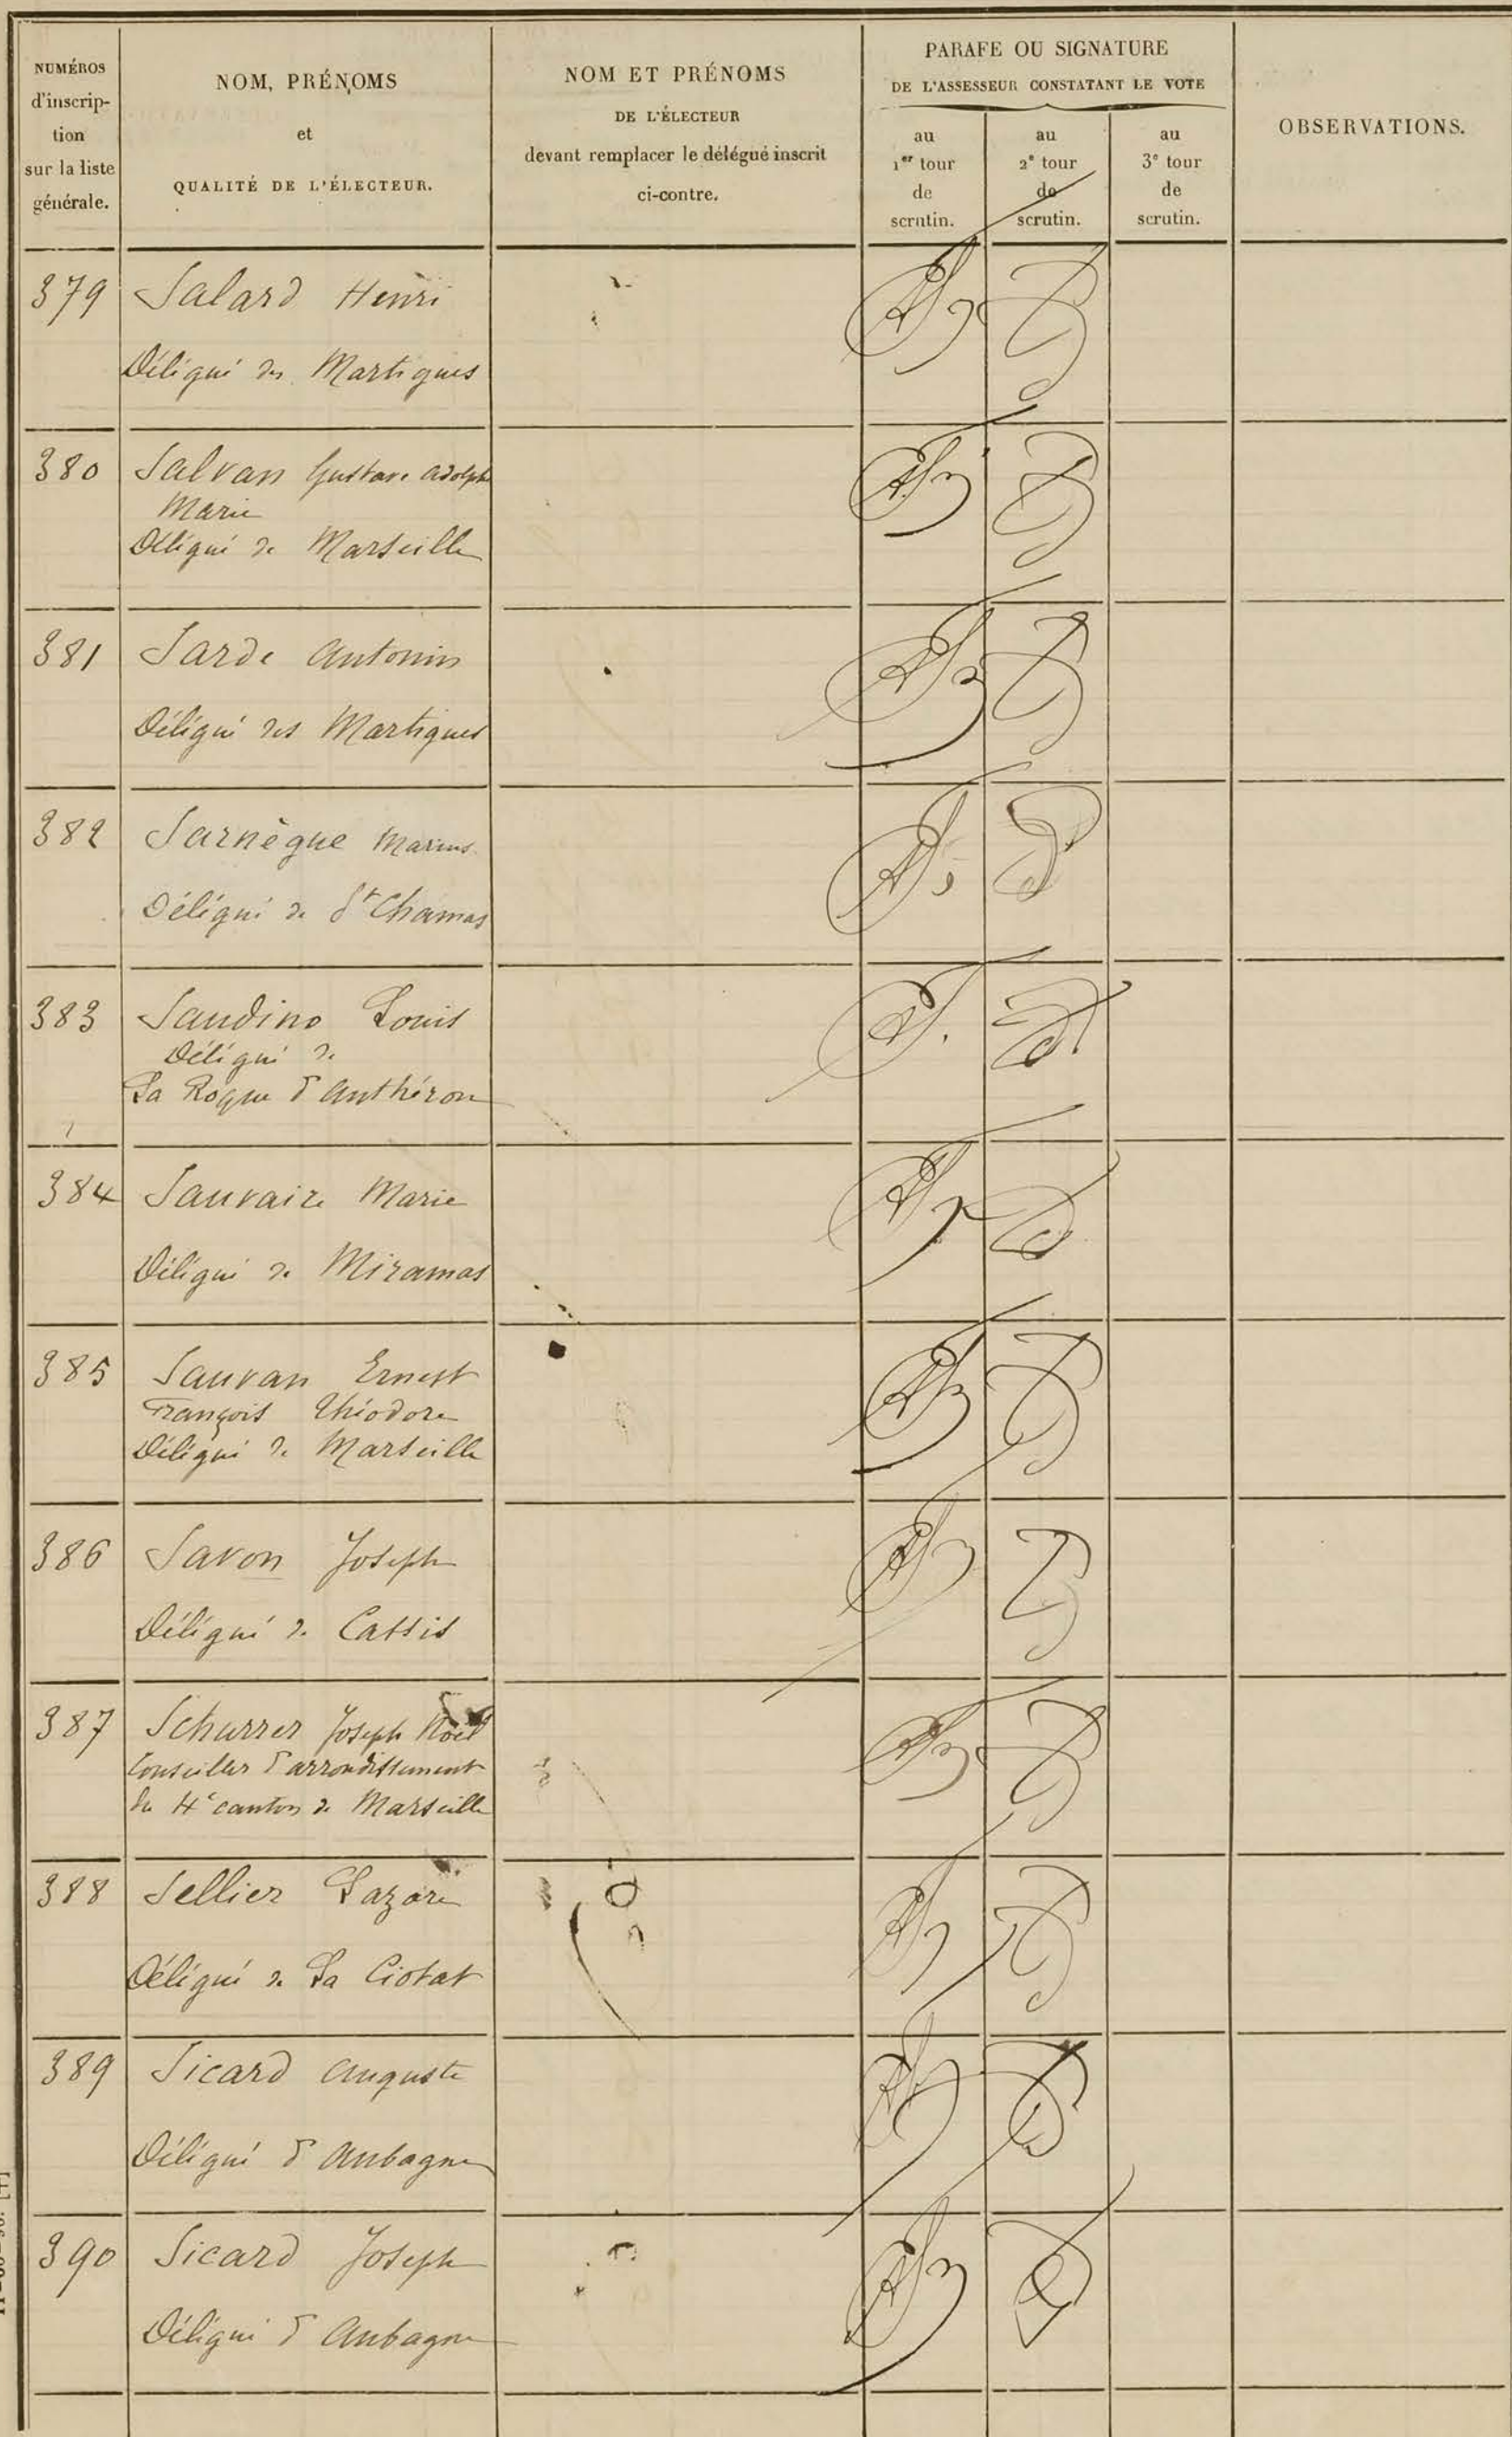 NUMÉROS
d'inscrip-
tion
sur la liste
générale.
NOM, PRÉNOMS
et
QUALITÉ DE L'ÉLECTEUR.
NOM ET PRÉNOMS
DE L'ÉLECTEUR
devant remplacer le délégué inscrit
ci-contre.
PARAFE OU SIGNATURE
DE L'ASSESSEUR CONSTATANT LE VOTE
au
1er tour
de
scrutin.
au
2e tour
de
scrutin.
au
3e tour
de
scrutin.
OBSERVATIONS.
379 Salard Henri
Délégué des Martigues
380 Salvan Gustave Adolphe
Marie
Délégué de Marseille
381 Sarde Antonin
Délégué des Martigues
382 Sarnègue Marius
Délégué de St Chamas
383 Saudino Louis
Délégué de
La Roque d'Anthéron
384 Sauvaire Marie
Délégué de Miramas
385 Sauvan Ernest
François Théodore
Délégué de Marseille
386 Savon Joseph
Délégué de Cassis
387 Schurrer Joseph Noël
Conseiller d'arrondissement
du 4e canton de Marseille
388 Sellier Lazare
Délégué de La Ciotat
389 Sicard Auguste
Délégué d'Aubagne
390 Sicard Joseph
Délégué d'Aubagne